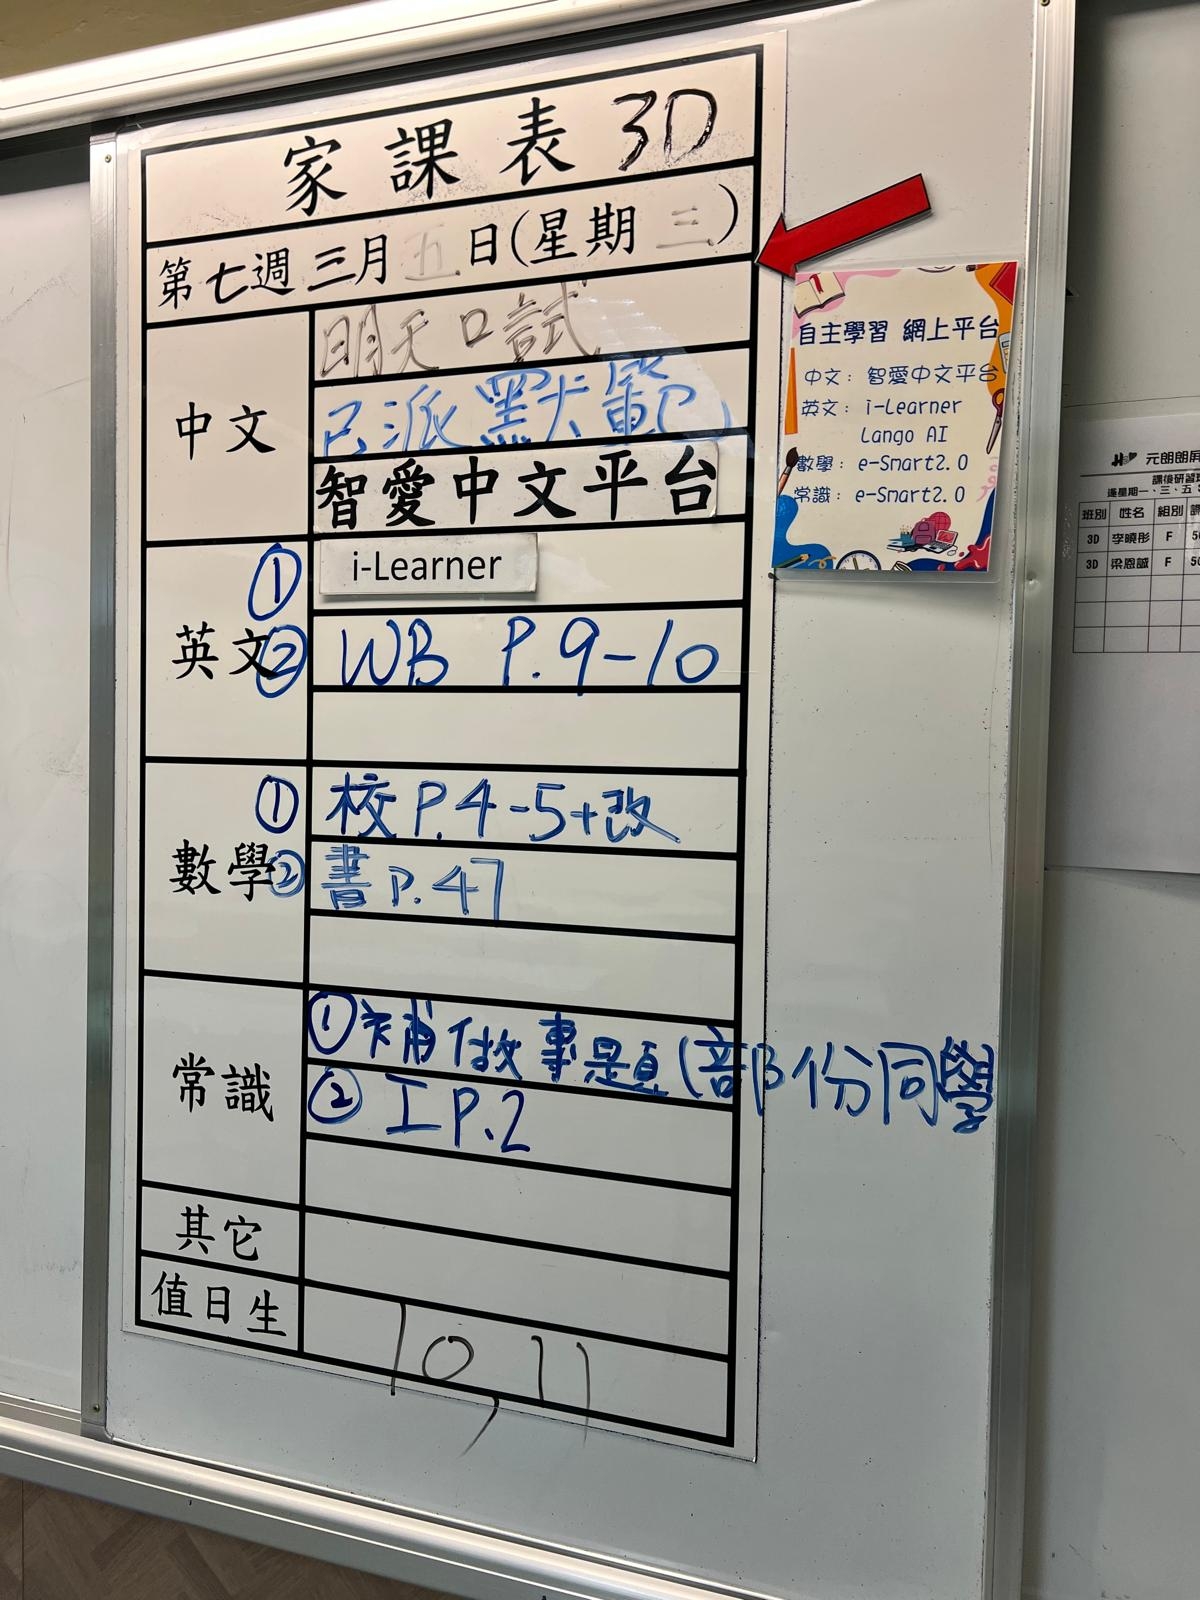 家課表 3D
第七週 三月五日(星期三)
中文
明天口試
已派默範
智愛中文平台
英文
① i-Learner
② WB P.9-10
數學
① 校 P.4-5+改
② 書 P.47
常識
① 補做專題(部份同學
② 工 P.2
其它
值日生
10, 11
自主學習 網上平台
中文：智愛中文平台
英文：i-Learner
Lango AI
數學：e-Smart2.0
常識：e-Smart2.0
元朗朗屏
課後研習
逢星期一、三、五
班別 姓名 組別
3D 李曉彤 F 50
3D 梁恩誠 F 50